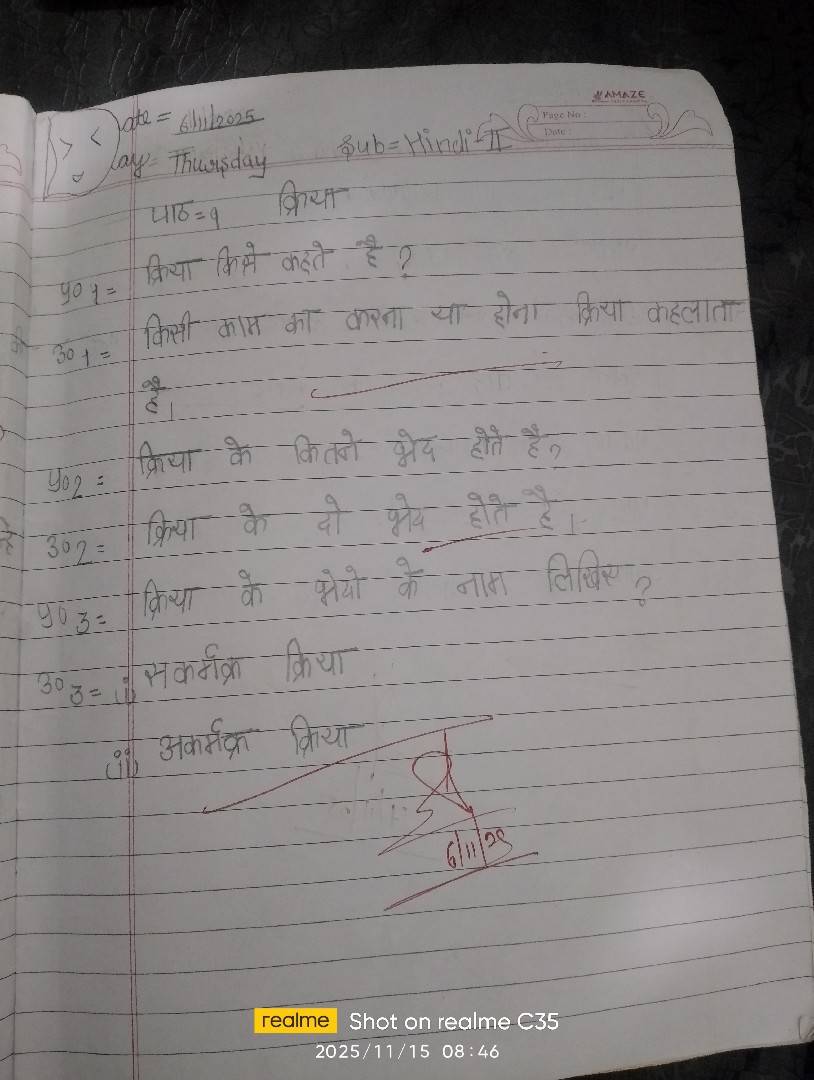 AMAZE
Page No :
Date :
Date = 6/11/2025
Day = Thursday Sub = Hindi-II
पाठ=9 क्रिया
प्र01= क्रिया किसे कहते है ?
उ01= किसी काम का करना या होना क्रिया कहलाता
है।
प्र02= क्रिया के कितने भेद होते है?
उ02= क्रिया के दो भेद होते है।
प्र03= क्रिया के भेदो के नाम लिखिए ?
उ03= (i) सकर्मक क्रिया
(ii) अकर्मक क्रिया
6/11/25
realme Shot on realme C35
2025/11/15 08:46